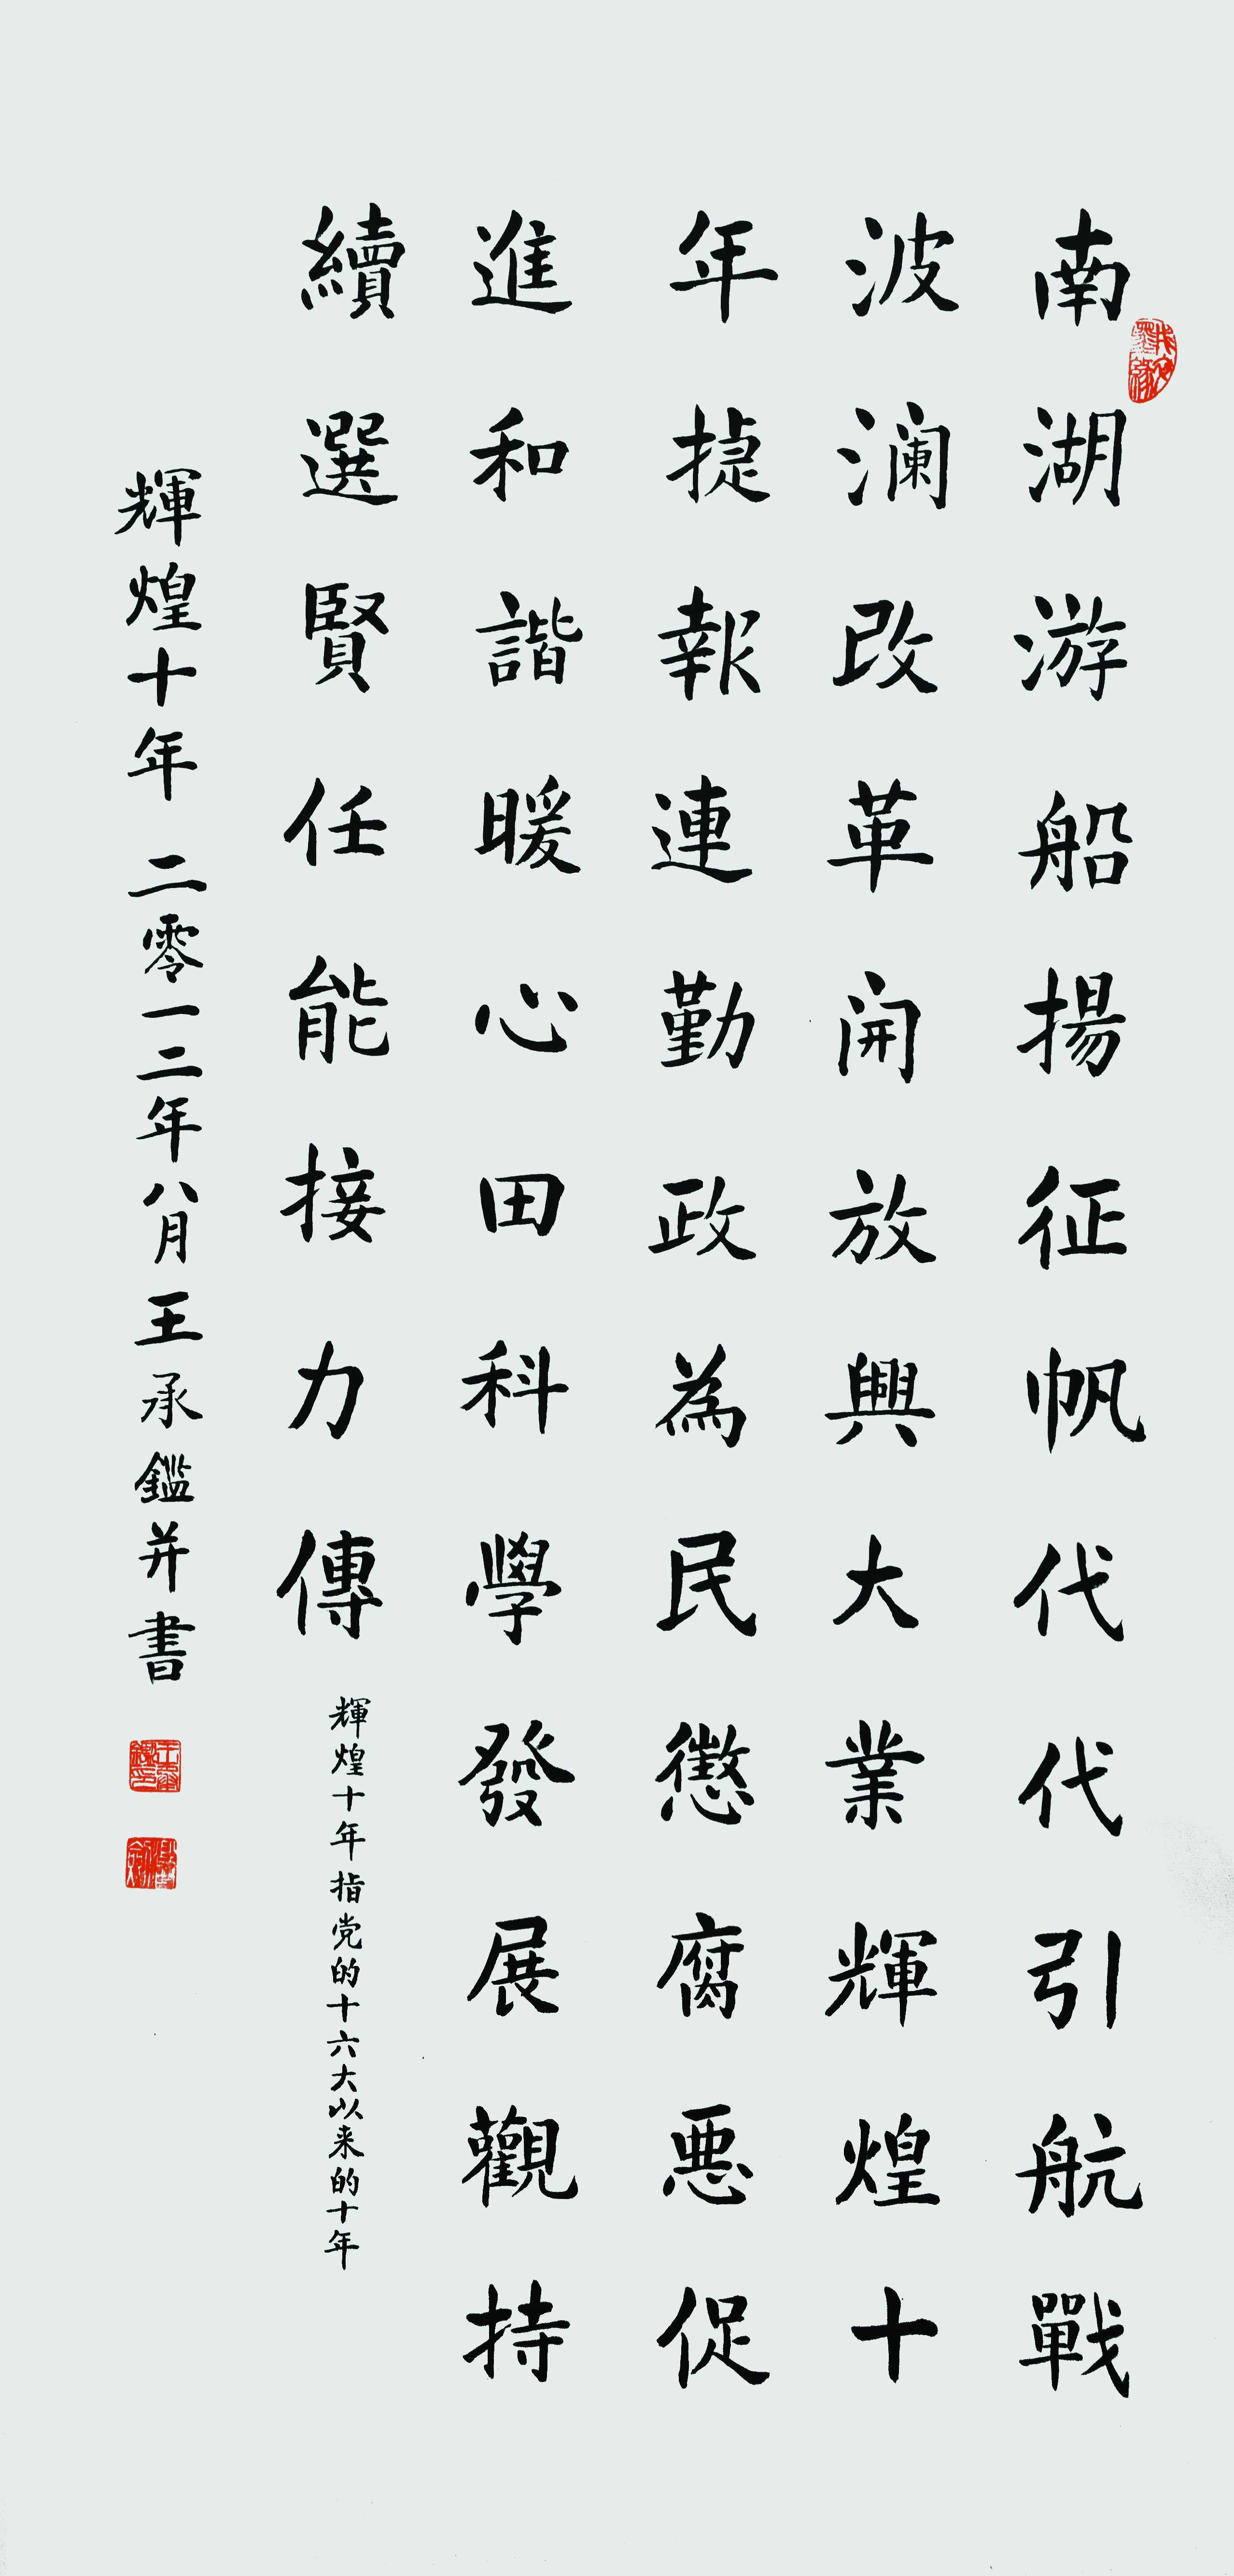 南湖游船揚征帆代代引航戰
波澜改革開放興大業輝煌十
年捷報連勤政為民懲腐惡促
進和諧暖心田科學發展觀持
續選賢任能接力傳
輝煌十年指党的十六大以来的十年
輝煌十年 二零一二年八月王承鑑并書